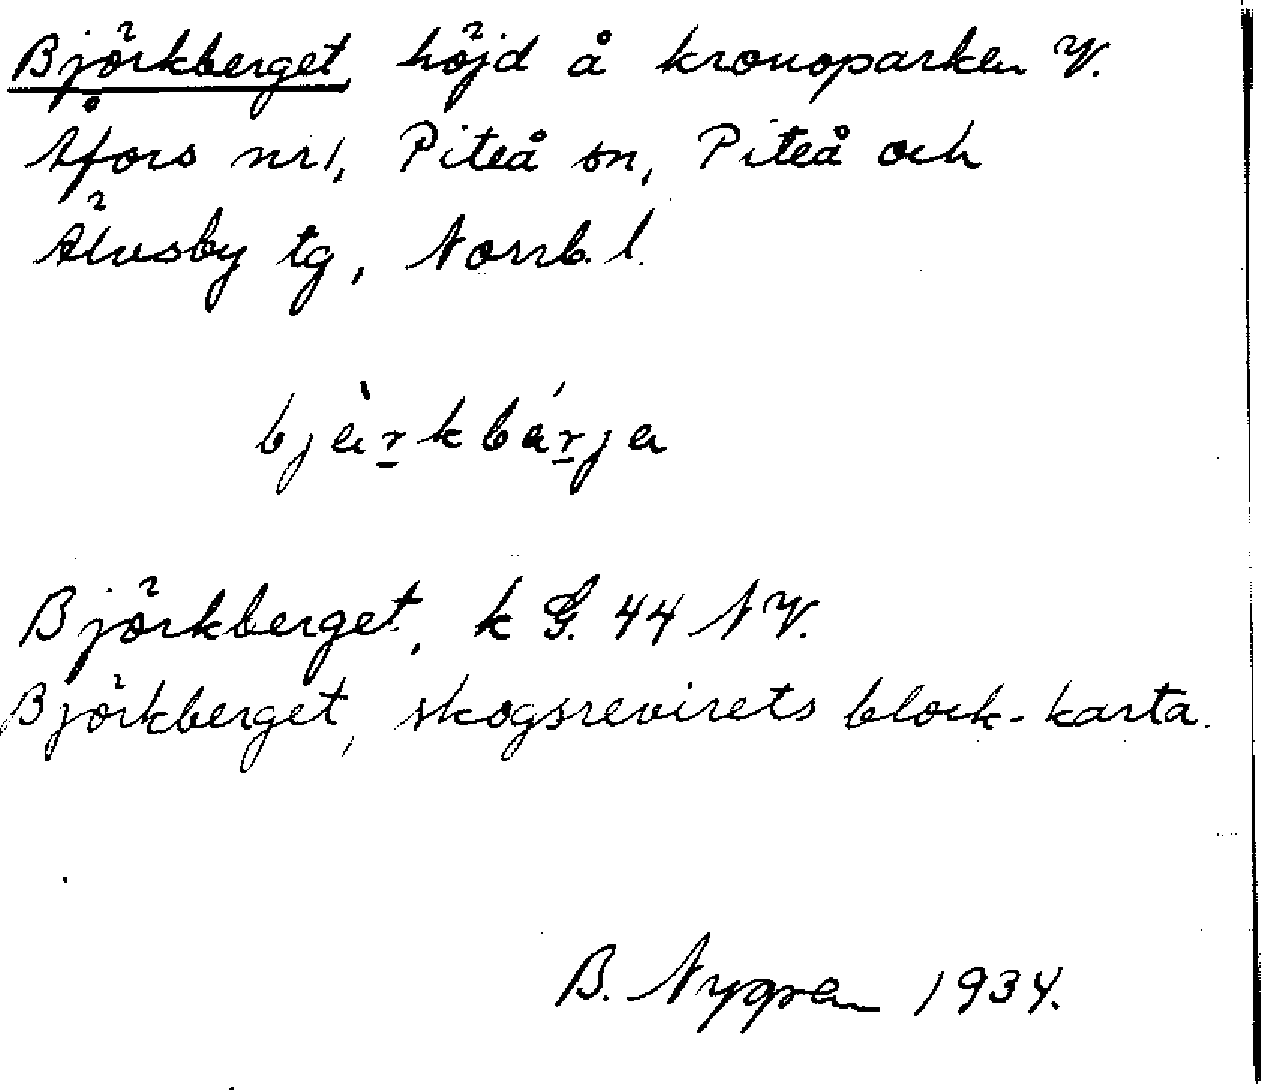 Björkberget, höjd å kronoparken V.
Åfors nr 1, Piteå sn, Piteå och
Älvsby tg, Norrb. l.
bjär̲kbár̲ja
Björkberget, k G. 44 NV.
Björkberget, skogsrevirets block-karta.
B. Nygren 1934.